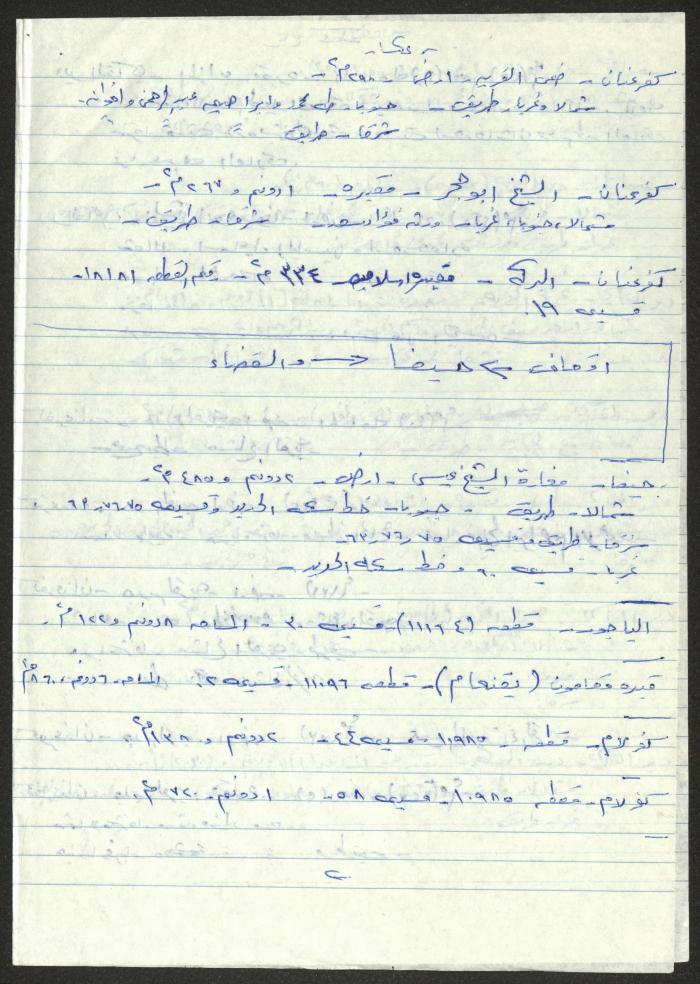 - عكا -
كفر عنان - ضمن القرية - ارض - ٢٩٨م٢ -
شمالا وغربا - طريق - جنوبا - طه محمد وابراهيم عبد الرحمن واخوانه -
شرقا - طريق
كفر عنان - الشيخ ابو حجر - مقبره - ١ دونم و ٢٦٧ م٢ -
شمالا، جنوبا، غربا - ورثة فؤاد سعد - شرقا - طريق -
كفر عنان - البركة - مقبرة اسلاميه - ٣٣٤ م٢ - رقم القطعه ١٨١٨١ -
قسيمه ١٩ .
اوقاف حيفا والقضاء
حيفا - مغارة الشيخ عيسى - ارض - ٢ دونم و ٤٨٥ م٢ -
شمالا - طريق - جنوبا - خط سكة الحديد وقسيمه ٧٥ر٧٦ر٦٣ .
شرقا - طريق، قسيمه ٧٥ر٧٦ر٦٣ -
غربا - قسيمه ٦٠ وخط سكة الحديد -
الياجور - قطعه (١١١٦٤) - قسيمه ٣٠ - المساحه ٨ دونم و ١٢٢ م٢ .
قيره وقامون (يقنعام) - قطعه ١١٠٩٦ - قسيمه ٢ . المساحه - ٦ دونم، ٨٦٠ م٢
كفر لام - قطعه - ١٠٩٨٥ - قسيمه ٤٤ - ٢ دونم و ١٣٨ م٢
كفر لام - قطعه ١٠٩٨٥ - قسيمه ٥٨ - ١ دونم - ٧٢٠ م٢
٢